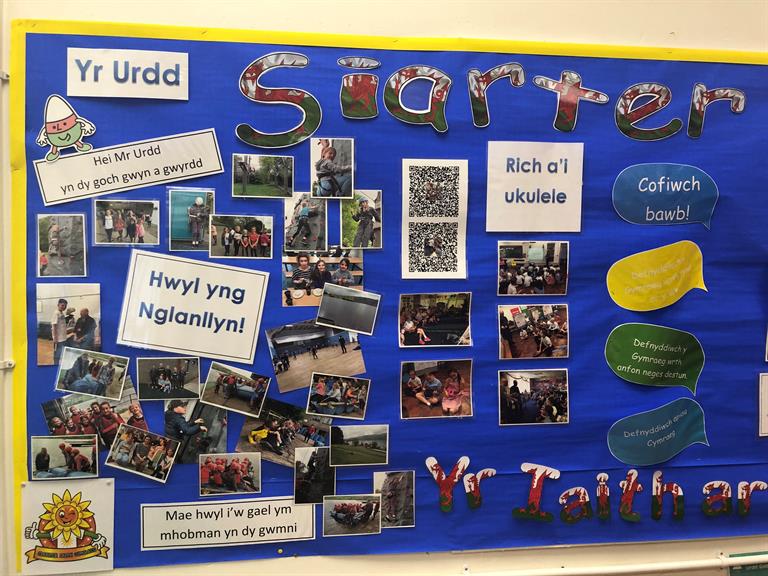 Yr Urdd
Siarter
Hei Mr Urdd
yn dy goch gwyn a gwyrdd
Rich a'i
ukulele
Cofiwch
bawb!
Hwyl yng
Nglanllyn!
Defnyddiwch y
Gymraeg wrth
anfon neges destun.
Defnyddiwch apiau
Cymraeg
Mae hwyl i'w gael ym
mhobman yn dy gwmni
Yr Iaith ar